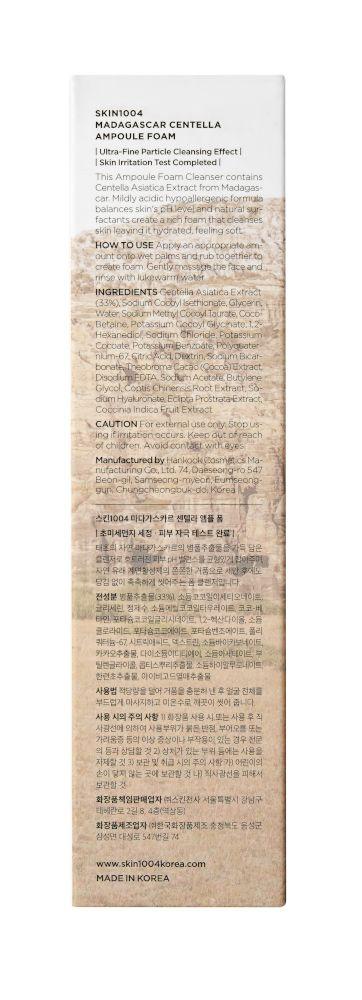 SKIN1004
MADAGASCAR CENTELLA
AMPOULE FOAM
| Ultra-Fine Particle Cleansing Effect |
| Skin Irritation Test Completed |
This Ampoule Foam Cleanser contains
Centella Asiatica Extract from Madagas-
car. Mildly acidic hypoallergenic formula
balances skin's pH level, and natural sur-
factants create a rich foam that cleanses
skin leaving it hydrated, feeling soft.
HOW TO USE Apply an appropriate am-
ount onto wet palms and rub together to
create foam. Gently massage the face and
rinse with lukewarm water.
INGREDIENTS Centella Asiatica Extract
(33%), Sodium Cocoyl Isethionate, Glycerin,
Water, Sodium Methyl Cocoyl Taurate, Coco-
Betaine, Potassium Cocoyl Glycinate, 1,2-
Hexanediol, Sodium Chloride, Potassium
Cocoate, Potassium Benzoate, Polyquater-
nium-67, Citric Acid, Dextrin, Sodium Bicar-
bonate, Theobroma Cacao (Cocoa) Extract,
Disodium EDTA, Sodium Acetate, Butylene
Glycol, Coptis Chinensis Root Extract, So-
dium Hyaluronate, Eclipta Prostrata Extract,
Coccinia Indica Fruit Extract
CAUTION For external use only. Stop us-
ing if irritation occurs. Keep out of reach
of children. Avoid contact with eyes.
Manufactured by Hankook Cosmetics Ma-
nufacturing Co., Ltd. 74, Daeseong-ro 547
Beon-gil, Samseong-myeon, Eumseong-
gun, Chungcheongbuk-do, Korea
스킨1004 마다가스카르 센텔라 앰플 폼
| 초미세먼지 세정 · 피부 자극 테스트 완료 |
태초의 자연 마다가스카르의 병풀추출물을 가득 담은
클렌저로 흐트러진 피부 pH 밸런스를 균형있게 잡아주며,
자연 유래 계면활성제의 쫀쫀한 거품으로 세안 후에도
당김 없이 촉촉하게 씻어주는 폼 클렌저입니다.
전성분 병풀추출물(33%), 소듐코코일이세티오네이트,
글리세린, 정제수, 소듐메틸코코일타우레이트, 코코-베
타인, 포타슘코코일글리시네이트, 1,2-헥산다이올, 소듐
클로라이드, 포타슘코코에이트, 포타슘벤조에이트, 폴리
쿼터늄-67, 시트릭애씨드, 덱스트린, 소듐바이카보네이트,
카카오추출물, 다이소듐이디티에이, 소듐아세테이트, 부
틸렌글라이콜, 콥티스뿌리추출물, 소듐하이알루로네이트,
한련초추출물, 아이비고드열매추출물
사용법 적당량을 덜어 거품을 충분히 낸 후 얼굴 전체를
부드럽게 마사지하고 미온수로 깨끗이 씻어 줍니다.
사용 시의 주의 사항 1) 화장품 사용 시 또는 사용 후 직
사광선에 의하여 사용부위가 붉은 반점, 부어오름 또는
가려움증 등의 이상 증상이나 부작용이 있는 경우 전문
의 등과 상담할 것 2) 상처가 있는 부위 등에는 사용을
자제할 것 3) 보관 및 취급 시의 주의 사항 가) 어린이의
손이 닿지 않는 곳에 보관할 것 나) 직사광선을 피해서
보관할 것
화장품책임판매업자 ㈜스킨천사 서울특별시 강남구
테헤란로 2길 8, 4층(역삼동)
화장품제조업자 ㈜한국화장품제조 충청북도 음성군
삼성면 대성로 547번길 74
www.skin1004korea.com
MADE IN KOREA